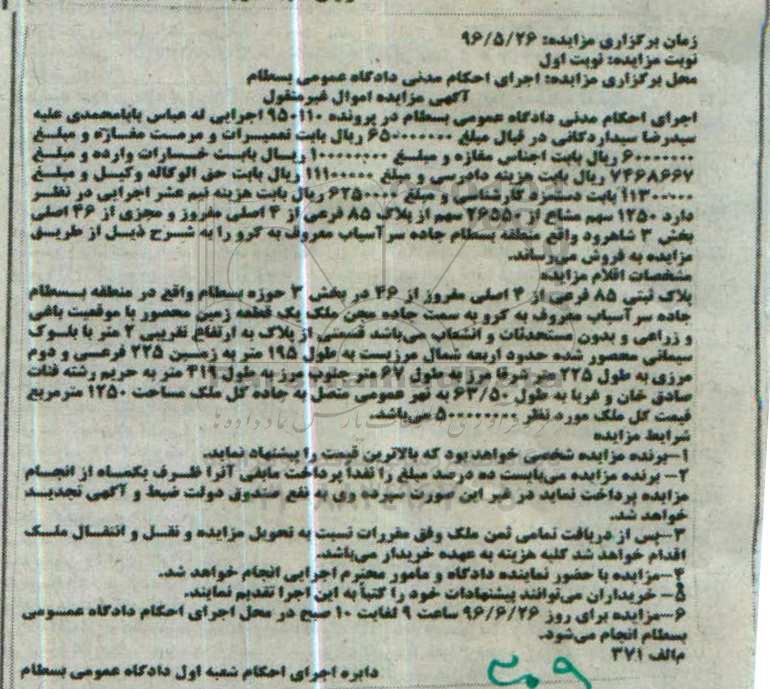 زمان برگزاری مزایده: ۹۶/۵/۲۶
نوبت مزایده: نوبت اول
محل برگزاری مزایده: اجرای احکام مدنی دادگاه عمومی بسطام
آگهی مزایده اموال غیرمنقول
اجرای احکام مدنی دادگاه عمومی بسطام در پرونده ۹۵۰۱۱۰ اجرایی له عباس بابامحمدی علیه
سیدرضا سیداردکانی در قبال مبلغ ۶۵۰۰۰۰۰۰۰ ریال بابت تعمیرات و مرمت مغازه و مبلغ
۶۰۰۰۰۰۰۰ ریال بابت اجناس مغازه و مبلغ ۱۰۰۰۰۰۰۰۰ ریال بابت خسارات وارده و مبلغ
۷۴۶۸۶۶۷ ریال بابت هزینه دادرسی و مبلغ ۱۱۱۰۰۰۰۰ ریال بابت حق الوکاله وکیل و مبلغ
۱۱۳۰۰۰۰۰ بابت دستمزد کارشناسی و مبلغ ۶۲۵۰۰۰۰ ریال بابت هزینه نیم عشر اجرایی در نظر
دارد ۱۲۵۰ سهم مشاع از ۲۶۵۵۰ سهم از پلاک ۸۵ فرعی از ۴ اصلی مفروز و مجزی از ۴۶ اصلی
بخش ۳ شاهرود واقع منطقه بسطام جاده سر آسیاب معروف به کرو را به شرح ذیل از طریق
مزایده به فروش می‌رساند.
مشخصات اقلام مزایده
پلاک ثبتی ۸۵ فرعی از ۴ اصلی مفروز از ۴۶ در بخش ۳ حوزه بسطام واقع در منطقه بسطام
جاده سرآسیاب معروف به کرو به سمت جاده مجن ملک یک قطعه زمین محصور با موقعیت باغی
و زراعی و بدون مستحدثات و انشعاب می‌باشد قسمتی از پلاک به ارتفاع تقریبی ۲ متر با بلوک
سیمانی محصور شده حدود اربعه شمال مرزیست به طول ۱۹۵ متر به زمین ۲۲۵ فرعی و دوم
مرزی به طول ۲۲۵ متر شرقا مرز به طول ۶۷ متر جنوب مرز به طول ۴۱۹ متر به حریم رشته قنات
صادق خان و غربا به طول ۶۳/۵۰ به نهر عمومی متصل به جاده کل ملک مساحت ۱۲۵۰ مترمربع
قیمت کل ملک مورد نظر ۵۰۰۰۰۰۰۰۰ می‌باشد.
شرایط مزایده
۱-برنده مزایده شخصی خواهد بود که بالاترین قیمت را پیشنهاد نماید.
۲- برنده مزایده می‌بایست ده درصد مبلغ را نقداً پرداخت مابقی آنرا ظرف یکماه از انجام
مزایده پرداخت نماید در غیر این صورت سپرده وی به نفع صندوق دولت ضبط و آگهی تجدید
خواهد شد.
۳-پس از دریافت تمامی ثمن ملک وفق مقررات نسبت به تحویل مزایده و نقل و انتقال ملک
اقدام خواهد شد کلیه هزینه به عهده خریدار می‌باشد.
۴-مزایده با حضور نماینده دادگاه و مامور محترم اجرایی انجام خواهد شد.
۵- خریداران می‌توانند پیشنهادات خود را کتباً به این اجرا تقدیم نمایند.
۶-مزایده برای روز ۹۶/۶/۲۶ ساعت ۹ لغایت ۱۰ صبح در محل اجرای احکام دادگاه عمومی
بسطام انجام می‌شود.
م‌الف ۳۷۱
دایره اجرای احکام شعبه اول دادگاه عمومی بسطام
۳۰۹